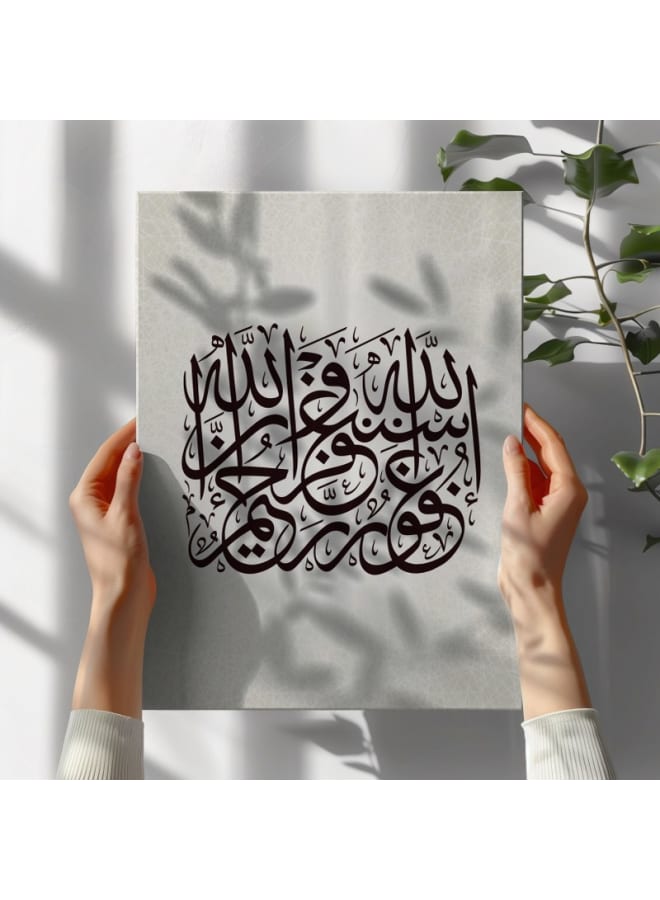 استغفروا الله إن الله غفور رحيم